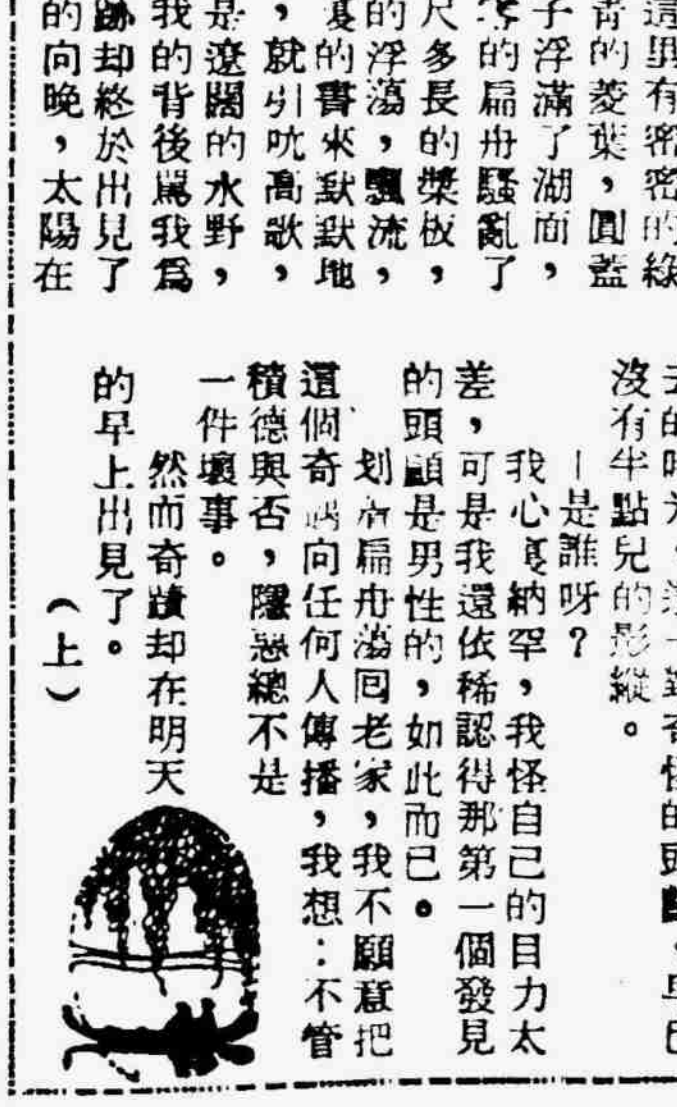 有密密的綠
的菱葉，圓蓋
子浮滿了湖面，
的扁舟騷亂了
尺多長的槳板，
的浮蕩，飄流，
裏的書來默默地
，就引吭高歌，
是遼闊的水野，
我的背後罵我爲
跡却終於出見了
的向晚，太陽在
的頭
沒有半點兒的影縱。
—是誰呀？
我心裏納罕，我怪自己的目力太
差，可是我還依稀認得那第一個發見
的頭顱是男性的，如此而已。
划着扁舟蕩回老家，我不願意把
這個奇遇向任何人傳播，我想：不管
積德與否，隱惡總不是
一件壞事。
然而奇蹟却在明天
的早上出見了。
（上）